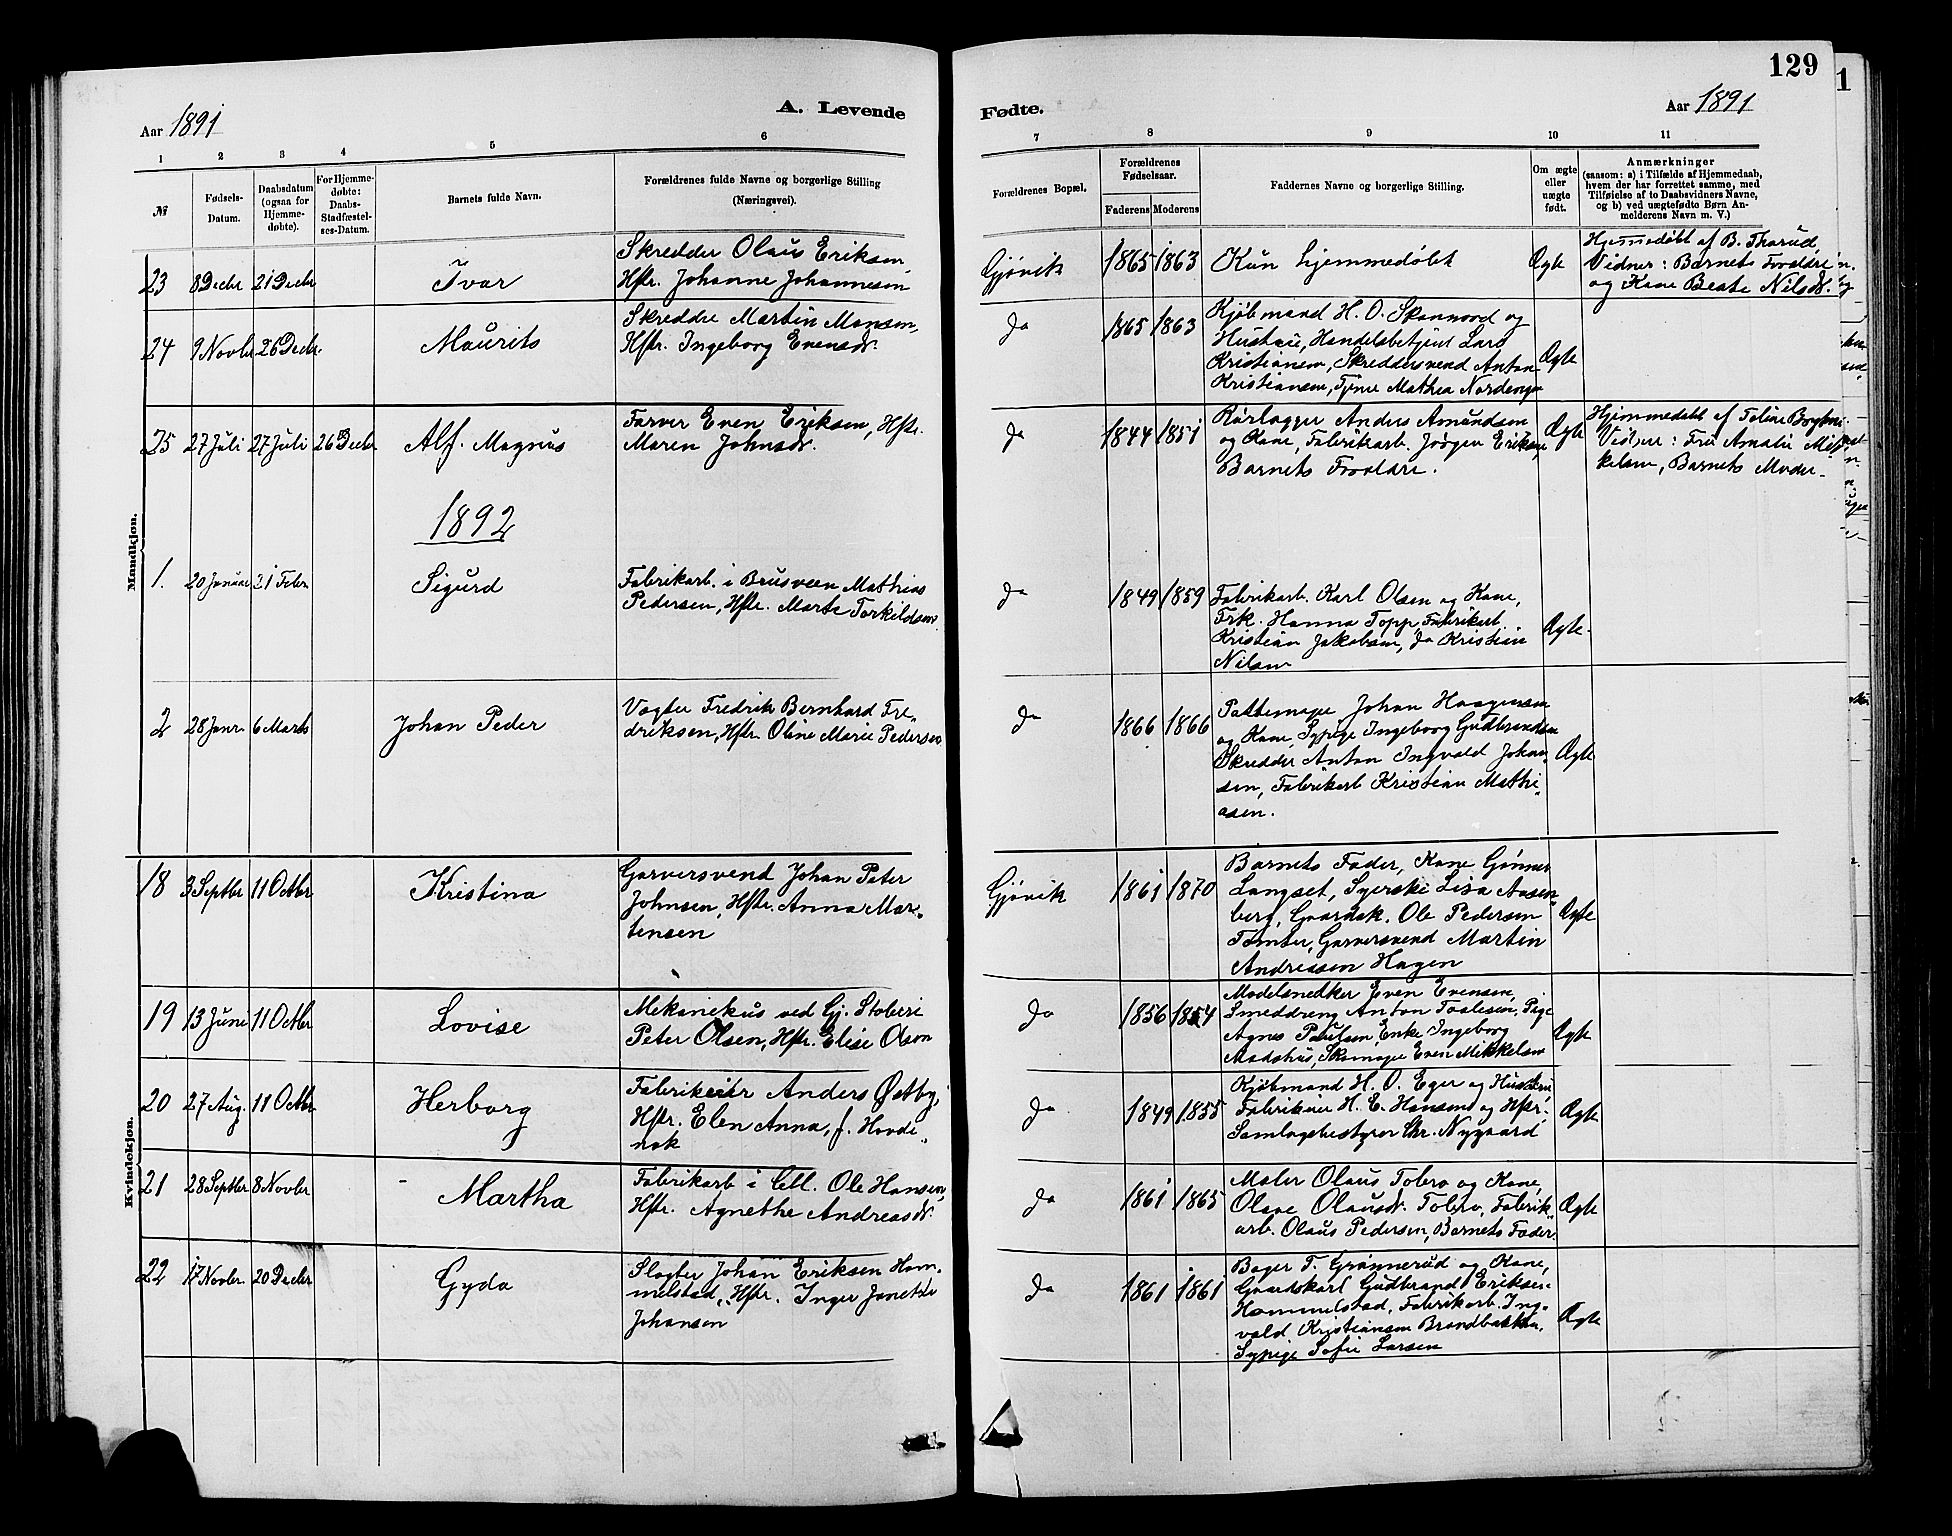 129
1
Aar 1891
A. Levende
Fødte.
Aar 1891
1
2
3
4
5
6
7
8
9
10
11
№
Fødsels-
Datum.
Daabsdatum
(ogsaa for
Hjemme-
døbte).
For Hjemme-
døbte:
Daabs-
Stadfæstel-
ses-Datum.
Barnets fulde Navn.
Forældrenes fulde Navne og borgerlige Stilling
(Næringsvei).
Forældrenes Bopæl.
Forældrenes
Fødselsaar.
Faderens
Moderens
Faddernes Navne og borgerlige Stilling.
Om ægte
eller
uægte
født.
Anmærkninger
(saasom: a) i Tilfælde af Hjemmedaab,
hvem der har forrettet samme, med
Tilføielse af to Daabsvidners Navne,
og b) ved uægtefødte Børn An-
melderens Navn m. V.)
Mandkjøn.
23
8 Decbr
21 Decbr
Ivar
Skredder Olaus Eriksen,
Hstr. Johanne Johannesen
Gjøvik
1865
1863
Kun hjemmedøbt
Ægte
Hjemmedøbt af B. Tharud,
Vidner: Barnets Forældre
og Kone Beate Nilsdr.
24
9 Novbr
26 Decbr.
Maurits
Skredder Martin Monsen,
Hstr. Ingeborg Evensdr.
do
1865
1863
Kjøbmand H. O. Skonnord og
Hustru, Handelsbetjent Lars
Kristiansen, Skreddersvend Anton
Kristiansen, Tjener Mathea Nordengen
Ægte
25
27 Juli
27 Juli
26 Decbr
Alf. Magnus
Farver Even Eriksen, Hstr.
Maren Johnsdr.
do
1844
1851
Rørlægger Anders Amundsen
og Kone, Fabrikarb. Jørgen Eriksen,
Barnets Forældre.
Ægte
Hjemmedøbt af Toline
Vidner: Frk Amalie Mik-
kelsen, Barnets Moder.
1892
1.
20 Januar
21 Febr
Sigurd
Fabrikarb. i Brusveen Mathias
Pedersen, Hstr. Marte Torkildsen.
do
1849
1859
Fabrikarb. Karl Olsen og Kone,
Frk. Hanna Topp, Fabrikarb.
Kristian Jakobsen, do Kristian
Nilsen
Ægte.
2
28 Janr.
6 Marts
Johan Peder
Vægter Fredrik Bernhard Fre-
driksen, Hstr. Oline Marie Pedersen
do
1866
1866
Pottemager Johan Haagensen
og Kone, Sypige Ingeborg Gudbrandsen
Skredder Anton Ingvald Johan-
sen, Fabrikarb Kristian Mathi-
asen.
Ægte
Kvindekjøn.
18
3 Septbr
11 Octbr
Kristina
Garversvend Johan Peter
Johnsen, Hstr. Anna Mor-
tensen
Gjøvik
1861
1870
Barnets Fader, Kone Gønner
Langset, Syerske Lisa Aasen-
berg, Gaardsk. Ole Pedersen
Tomter, Garversvend Martin
Andreasen Hagen
Ægte
19
13 Juni
11 Octbr
Lovise
Mekanikus ved Gj. Støberi
Peter Olsen, Hstr. Elise Olsen
do
1856
1854
Modelsnedker Even Evensen,
Smeddreng Anton Paulsen, Pige
Agnes Paulsen, Enke Ingeborg
Aadshus, Skomager Even Mikkelsen
Ægte
20
27 Aug.
11 Octbr
Herborg
Fabrikeier Anders Østby,
Hstr. Elen Anna, f. Hovde-
nak
do
1849
1855
Kjøbmand H. O. Eger og Hustru
Fabrikeier H. E. Hansen og Hstr.
Samlagsbestyrer Chr. Nygaard
Ægte
21
28 Septbr
8 Novbr
Martha
Fabrikarb i Cell. Ole Hansen,
Hstr. Agnethe Andreasdr.
do
1861
1865
Maler Olaus Tobro og Kone,
Olave Olausdr. Tobro, Fabrik-
arb. Olaus Pedersen, Barnets Fader
Ægte
22
17 Novbr.
20 Decbr
Gyda
Slagter Johan Eriksen Hom-
melstad, Hstr. Inger Janette
Johansen
do
1861
1861
Bager T. Grønnerud og Kone,
Gaardskarl Gudbrand Eriksen
Hommelstad, Fabrikarb. Ing-
vald Kristiansen Brandbakken,
Sypige Sofie Larsen
Ægte